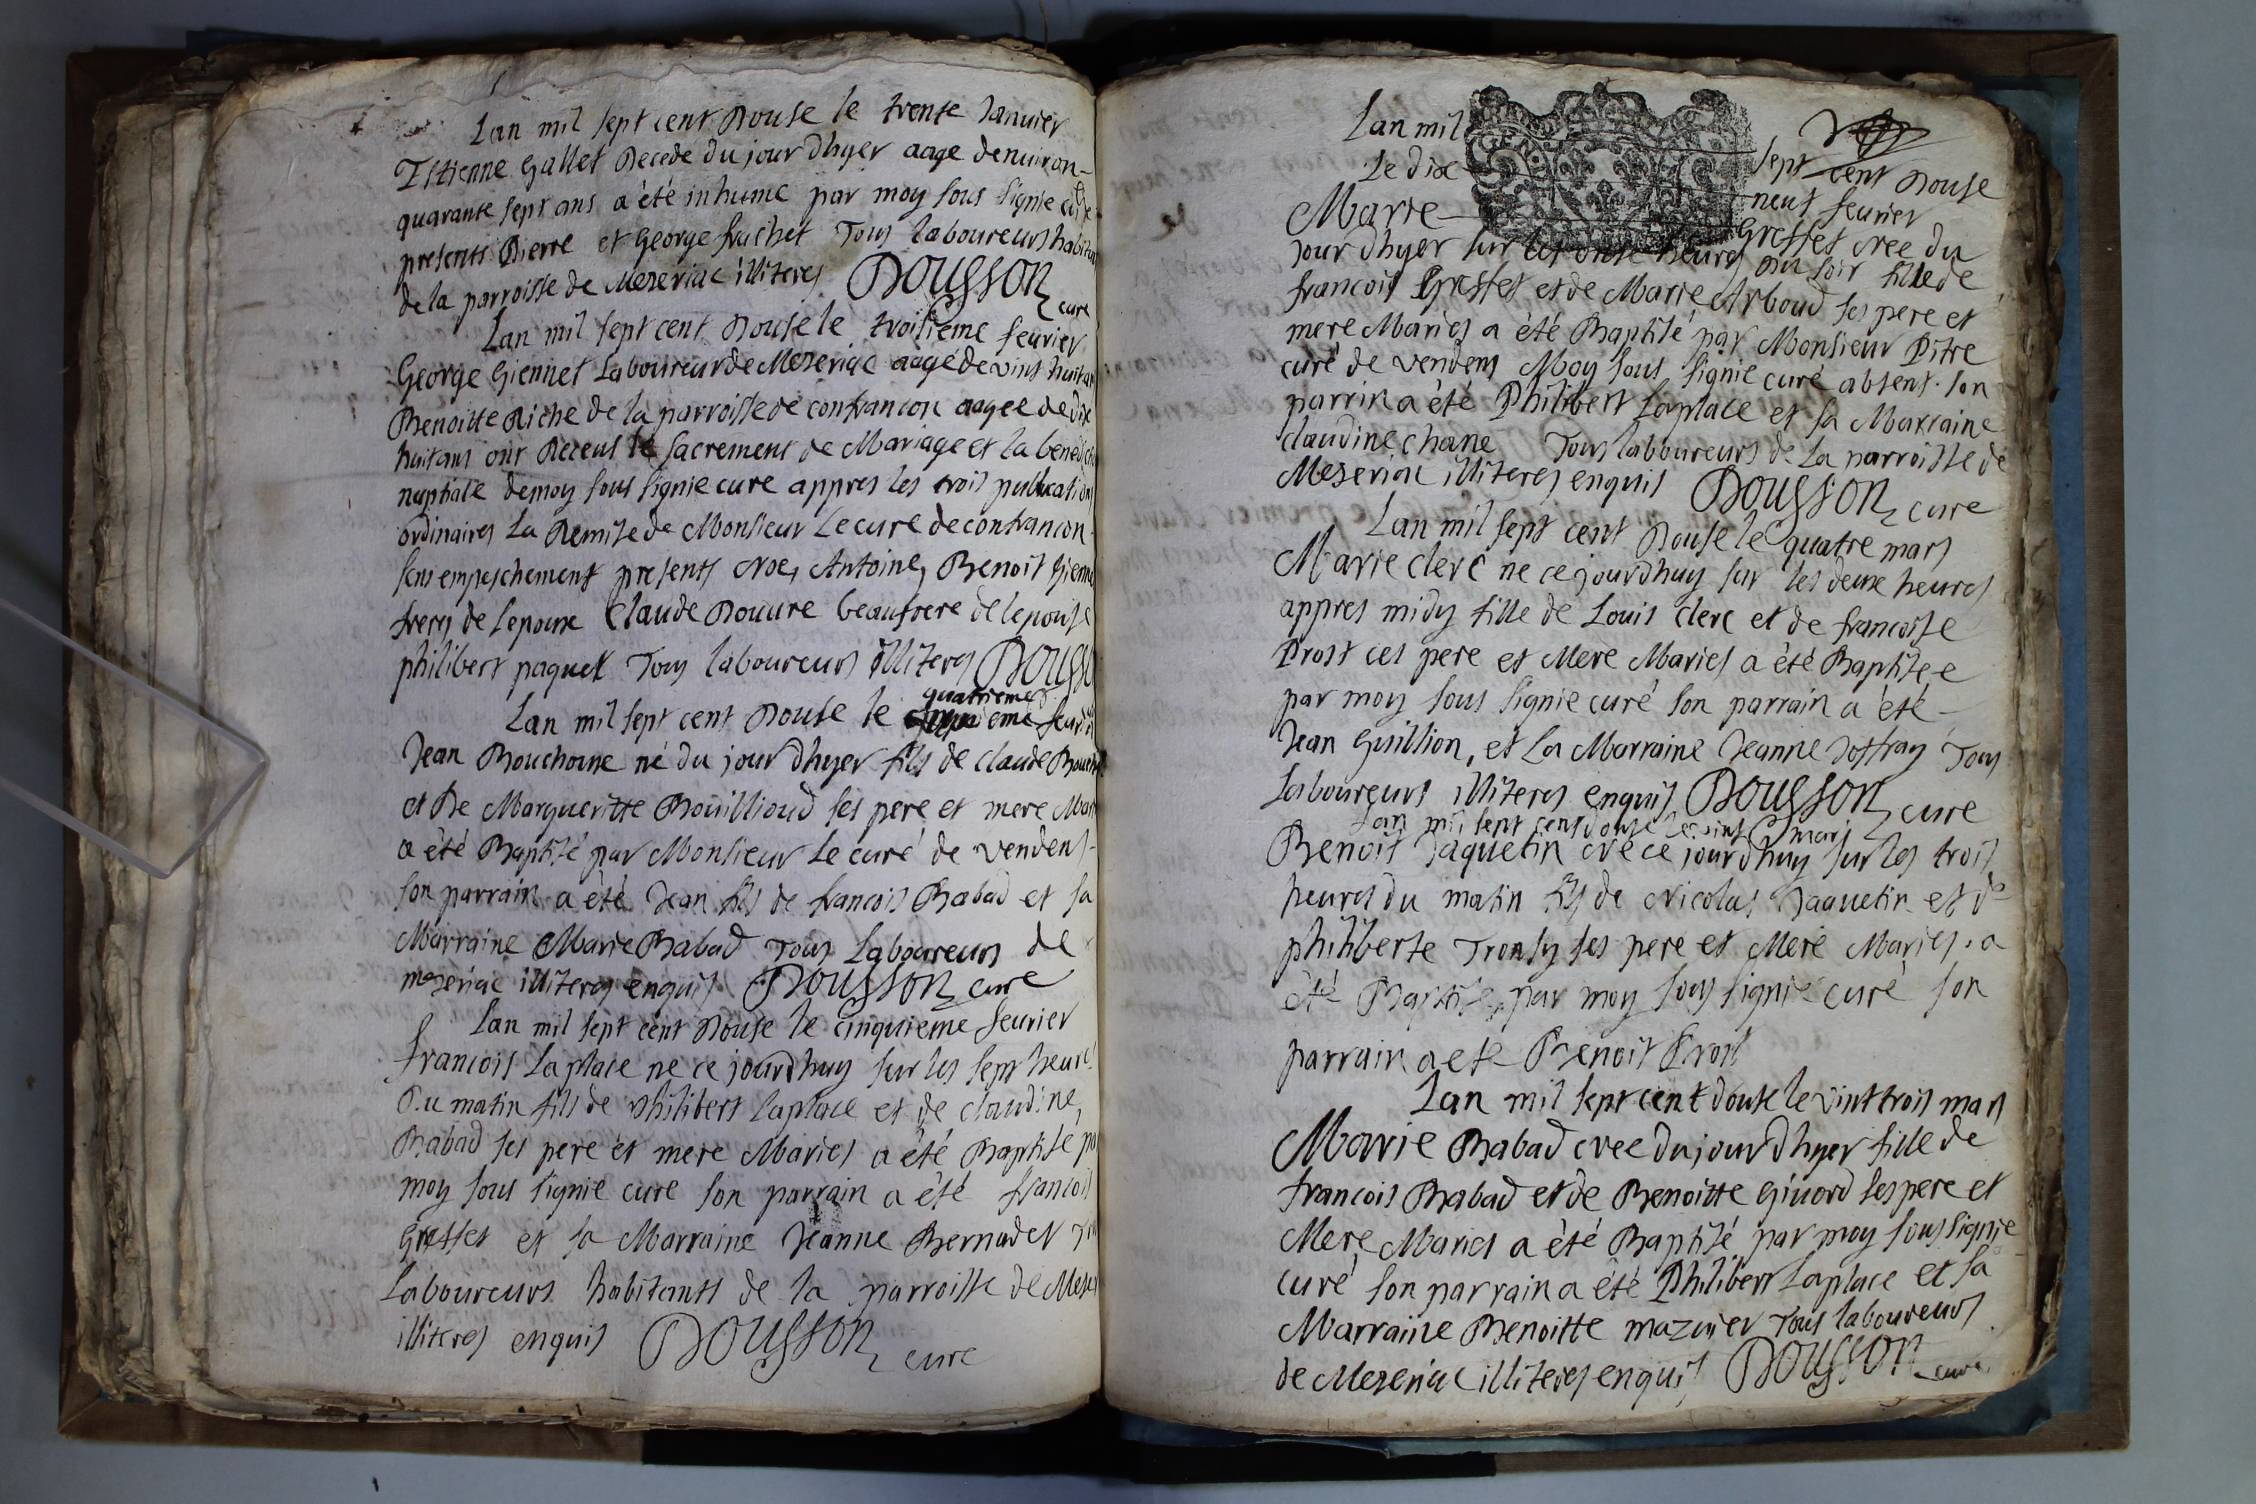 Lan mil sept cent Douse le trente Januier
Estienne Gallet Decede du jour dhyer aage denuiron
quarante sept ans a été inhume par moy sous signie cure
presents Pierre et George frachet Tous laboureurs habitan
de la parroisse de Meseriac illiteres Dousson cure
Lan mil sept cent Douse le troisieme feurier
George Giennet Laboureur de Meseriac aagé de vint huit an
Benoitte Riche de la parroisse de confrancon aagee de dix
huit ans ont Receus le sacrement de Mariage et la benedic
nuptiale de moy sous signie cure appres les trois publication
ordinaires La Remise de Monsieur Le cure de confrancon
sens empeschement presents Noe, Antoine, Benoit Gienne
freres de lepoux Claude Douure beaufrere de lepouse
philibert paquet Tous laboureurs illiteres Dousso
quatrieme
Lan mil sept cent Douse le feurier
Jean Bouchoux né du jour dhyer fils de claude Bouch
et De Margueritte Bouillioud ses pere et mere Mari
a été Baptisé par Monsieur Le curé de vendens
son parrain a été Jean fils de francois Babad et sa
Marraine Marie Babad Tous Laboureurs de
meseriac illiteres enquis Dousson cure
Lan mil sept cent Douse le cinquieme feurier
francois Laplace ne ce jourdhuy sur les sept heures
Du matin fils de philibert laplace et de claudine
Babad ses pere et mere Maries a été Baptise pa
moy sous signie cure son parrain a été francois
Greffet et sa Marraine Jeanne Bernadet
Laboureurs habitants de la parroisse de Mese
illiteres enquis Dousson cure
Lan mil sept cent Douse
Le dix neuf feurier
Marie Greffet nee du
jour dhyer sur les onse heures du soir fille de
francois Greffet et de Marie Arboud ses pere et
mere Maries a été Baptisé par Monsieur Pitre
curé de vendens Moy sous signie curé absent. son
parrin a été Philibert Laplace et sa Marraine
claudine chane Tous laboureurs de La parroisse de
Meseriac illiteres enquis Dousson cure
Lan mil sept cent Douse le quatre mars
Marie clerc ne ce jourdhuy sur les deux heures
appres midy fille de Louis clerc et de francoise
Prost ces pere et Mere Maries a été Baptisee
par moy sous signie curé son parrain a été
Jean Guillion, et La Marraine Jeanne Joffray Tous
Laboureurs illiteres enquis Dousson cure
Lan mil sept cent douse le vint mars
Benoit Jaquetin né ce jourdhuy sur les trois
heures du matin fils de Nicolas Jaquetin et de
philiberte Tronly ses pere et Mere Maries. a
été Baptise par moy sous signie curé son
parrain a ete Benoit Prost
Lan mil sept cent douse le vint trois mars
Marie Babad nee du jour dhyer fille de
francois Babad et de Benoitte Giuord ses pere et
Mere Maries a été Baptisé par moy sous signie
curé son parrain a été Philibert Laplace et sa
Marraine Benoitte mazuier Tous laboureurs
de Meseriac illiteres enquis Dousson cure